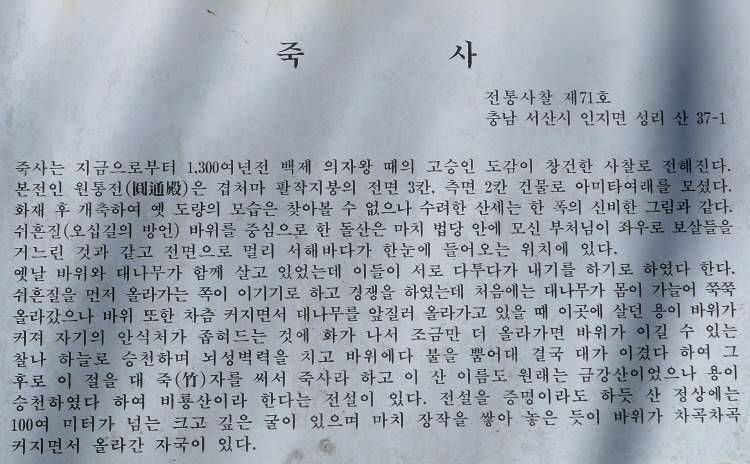 죽 사
전통사찰 제71호
충남 서산시 인지면 성리 산 37-1
죽사는 지금으로부터 1,300여년전 백제 의자왕 때의 고승인 도감이 창건한 사찰로 전해진다.
본전인 원통전(圓通殿)은 겹처마 팔작지붕의 전면 3칸, 측면 2칸 건물로 아미타여래를 모셨다.
화재 후 개축하여 옛 도량의 모습은 찾아볼 수 없으나 수려한 산세는 한 폭의 신비한 그림과 같다.
쉬흔질(오십길의 방언) 바위를 중심으로 한 돌산은 마치 법당 안에 모신 부처님이 좌우로 보살들을
거느린 것과 같고 전면으로 멀리 서해바다가 한눈에 들어오는 위치에 있다.
옛날 바위와 대나무가 함께 살고 있었는데 이들이 서로 다투다가 내기를 하기로 하였다 한다.
쉬흔질을 먼저 올라가는 쪽이 이기기로 하고 경쟁을 하였는데 처음에는 대나무가 몸이 가늘어 쭉쭉
올라갔으나 바위 또한 차츰 커지면서 대나무를 앞질러 올라가고 있을 때 이곳에 살던 용이 바위가
커저 자기의 안식처가 좁혀드는 것에 화가 나서 조금만 더 올라가면 바위가 이길 수 있는
찰나 하늘로 승천하며 뇌성벽력을 치고 바위에다 불을 뿜어대 결국 대가 이겼다 하여 그
후로 이 절을 대 죽(竹)자를 써서 죽사라 하고 이 산 이름도 원래는 금강산이었으나 용이
승천하였다 하여 비룡산이라 한다는 전설이 있다. 전설을 증명이라도 하듯 산 정상에는
100여 미터가 넘는 크고 깊은 굴이 있으며 마치 장작을 쌓아 놓은 듯이 바위가 차곡차곡
커지면서 올라간 자국이 있다.